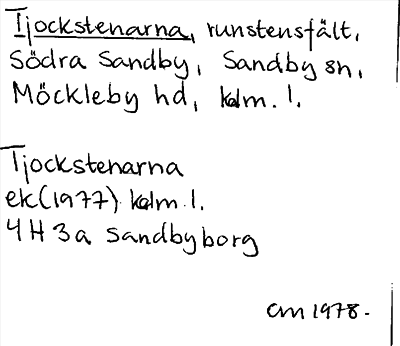 Tjockstenarna, runstensfält,
Södra Sandby, Sandby sn,
Möckleby hd, kalm. l.
Tjockstenarna
ek (1977) kalm l.
4 H 3a Sandbyborg
CM 1978.